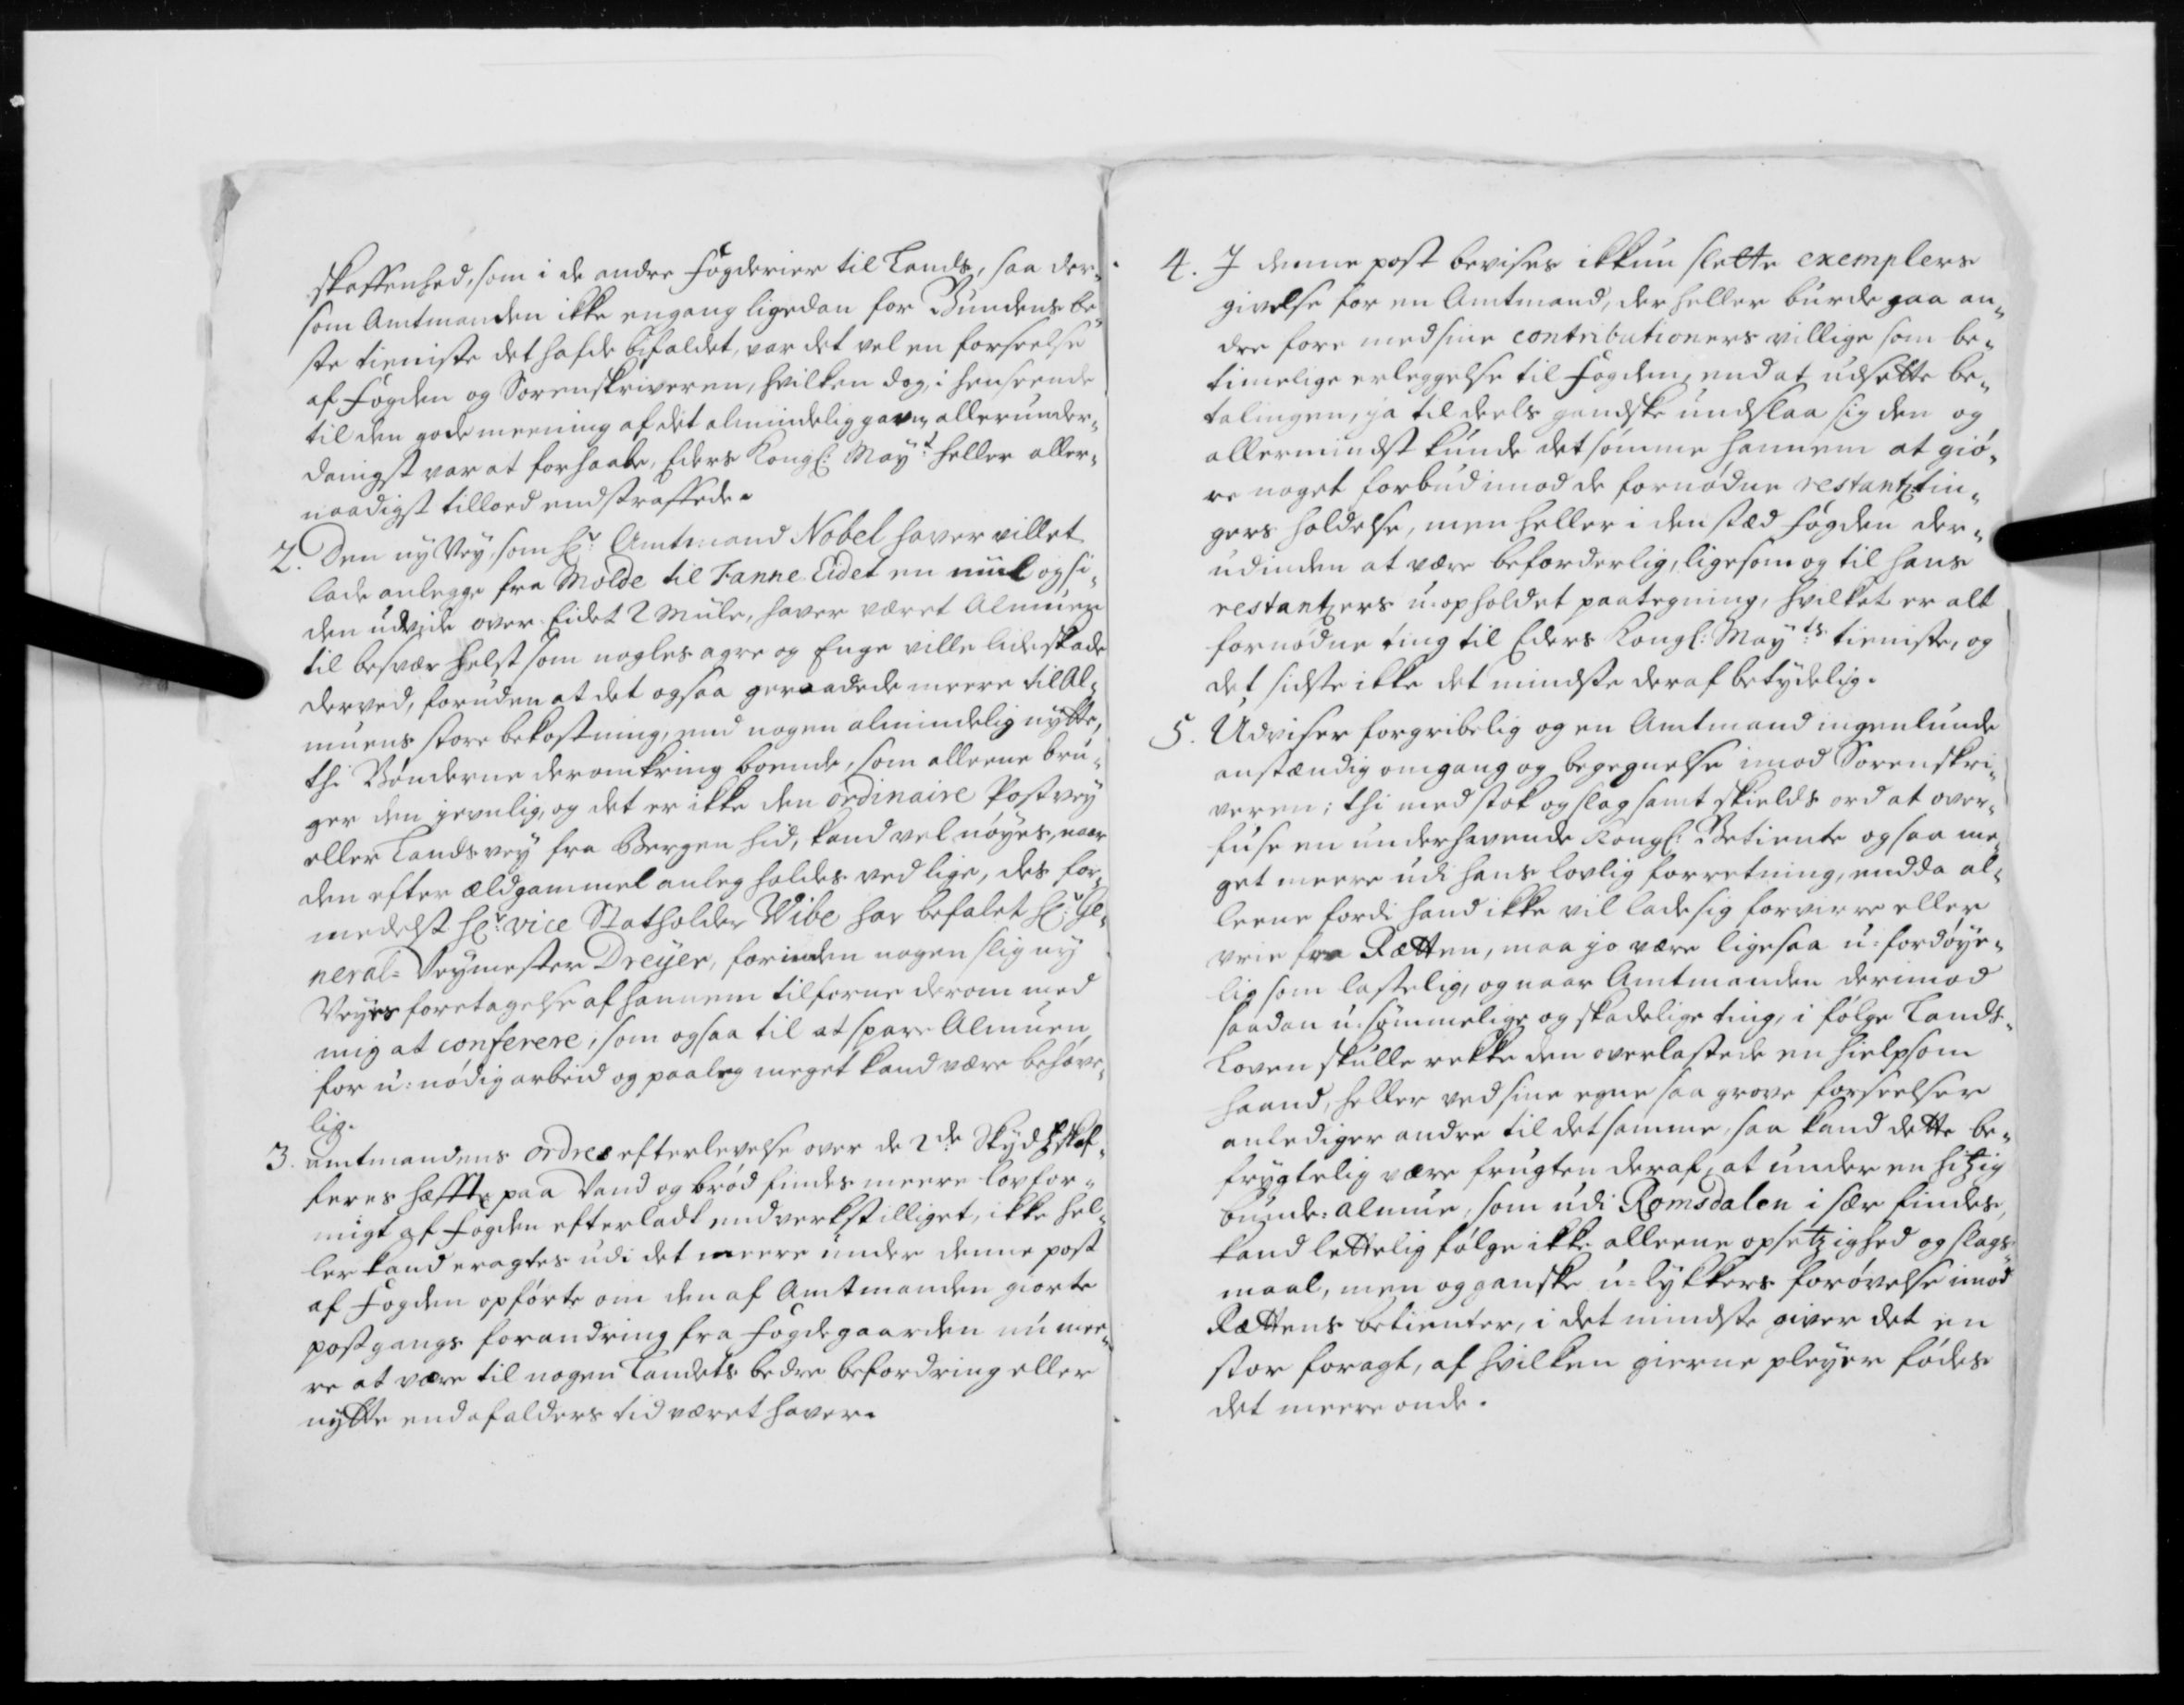 skaffenhed, som i de andre Fogderier til Lands, saa der„
som Amtmanden ikke engang ligedan for Bundens be„
ste tieniste det hafde bifaldet, var det vel en forseelse
af Fogden og Sorenskriveren, hvilken dog, i henseende
til den gode meening af det almindelig gavn, allerunder„
danigst var at forhaabe, Eders Kongl: Mayt. heller aller„
naadigst tilloed end straffede.
2. Den ny Vey, som Hr. Amtmand Nobel haver villet
lade anlegge fra Molde til Fanne Eidet en miil og si„
den udvide over Eidet 2 Mule, haver været Almuen
til besvær helst som nogles agre og Enge ville lide skade
derved, foruden at det ogsaa geraadede meere til Al„
muens store bekostning, end nogen almindelig nytte,
thi Bønderne deromkring boende, som alleene bru„
ger den jevnlig, og det er ikke den ordinaire Postvey
eller Landsvey fra Bergen hid, kand vel nøyes, naar
den efter ældgammel anleg holdes ved lige, des for„
medelst Hr. vice Statholder Wibe har befalet Hr. Ge„
neral-Veymester Dreyer, forinden nogen slig ny
Veyes foretagelse af hannem tilforne derom med
mig at conferere, som ogsaa til at spare Almuen
for u:nødig arbeid og paaleg meget kand være behøve„
lig.
3. amtmandens ordres efterlevelse over de 2de Skydtzskaf„
feres hæffte paa Vand og brød findes meere lovfor„
migt af Fogden efterladt end verkstilliget, ikke hel„
ler kand eragtes udi det meere under denne post
af Fogden opførte om den af Amtmanden giorte
postgangs forandring fra Fogdegaarden nu mee„
re at være til nogen Landets bedre befordring eller
nytte end afalders tid været haver.
4. I denne post bevises ikkun slette exemplers
givelse for en Amtmand, der heller burde gaa an„
dre fore med sine contributioners villige som be„
timelige erleggelse til Fogden, end at udsette be„
talingen, ja til deels gandske undslaa sig den og
allermindst kunde det sømme hannem at giø„
re noget forbud imod de fornødne restantztin„
gers holdelse, men heller i den stæd Fogden der„
udinden at være beforderlig, ligesom og til hans
restantzers u:opholdet paategning, hvilket er alt
fornødne ting til Eders Kongl: Mayts. tieniste, og
det sidste ikke det mindste deraf betydelig.
5. Udviser forgribelig og en Amtmand ingenlunde
anstændig omgang og begegnelse imod Sorenskri„
veren; thi med stok og slag samt skields ord at over„
fuse en underhavende Kongl: Betiente ogsaa me„
get meere udi hans lovlig forretning, endda al„
leene fordi hand ikke vil lade sig forvirre eller
vrie fra Rætten, maa jo være ligesaa u:fordøye„
lig som lastelig, og naar Amtmanden derimod
saadan u:sømmelige og skadelige ting, i følge Lands
Loven skulle rekke den overlastede en hielpsom
haand, heller ved sine egne saa grove forseelser
anlediger andre til det samme, saa kand dette be„
frygtelig være frugten deraf, at under en hitzig
bunde-almue, som udi Romsdalen i sær findes,
kand lettelig følge ikke alleene opsetzighed og slags„
maal, men og ganske u-lykkers forøvelse imod
Rættens betienter, i det mindste giver det en
stor foragt, af hvilken gierne pleyer fødes
det meere onde.